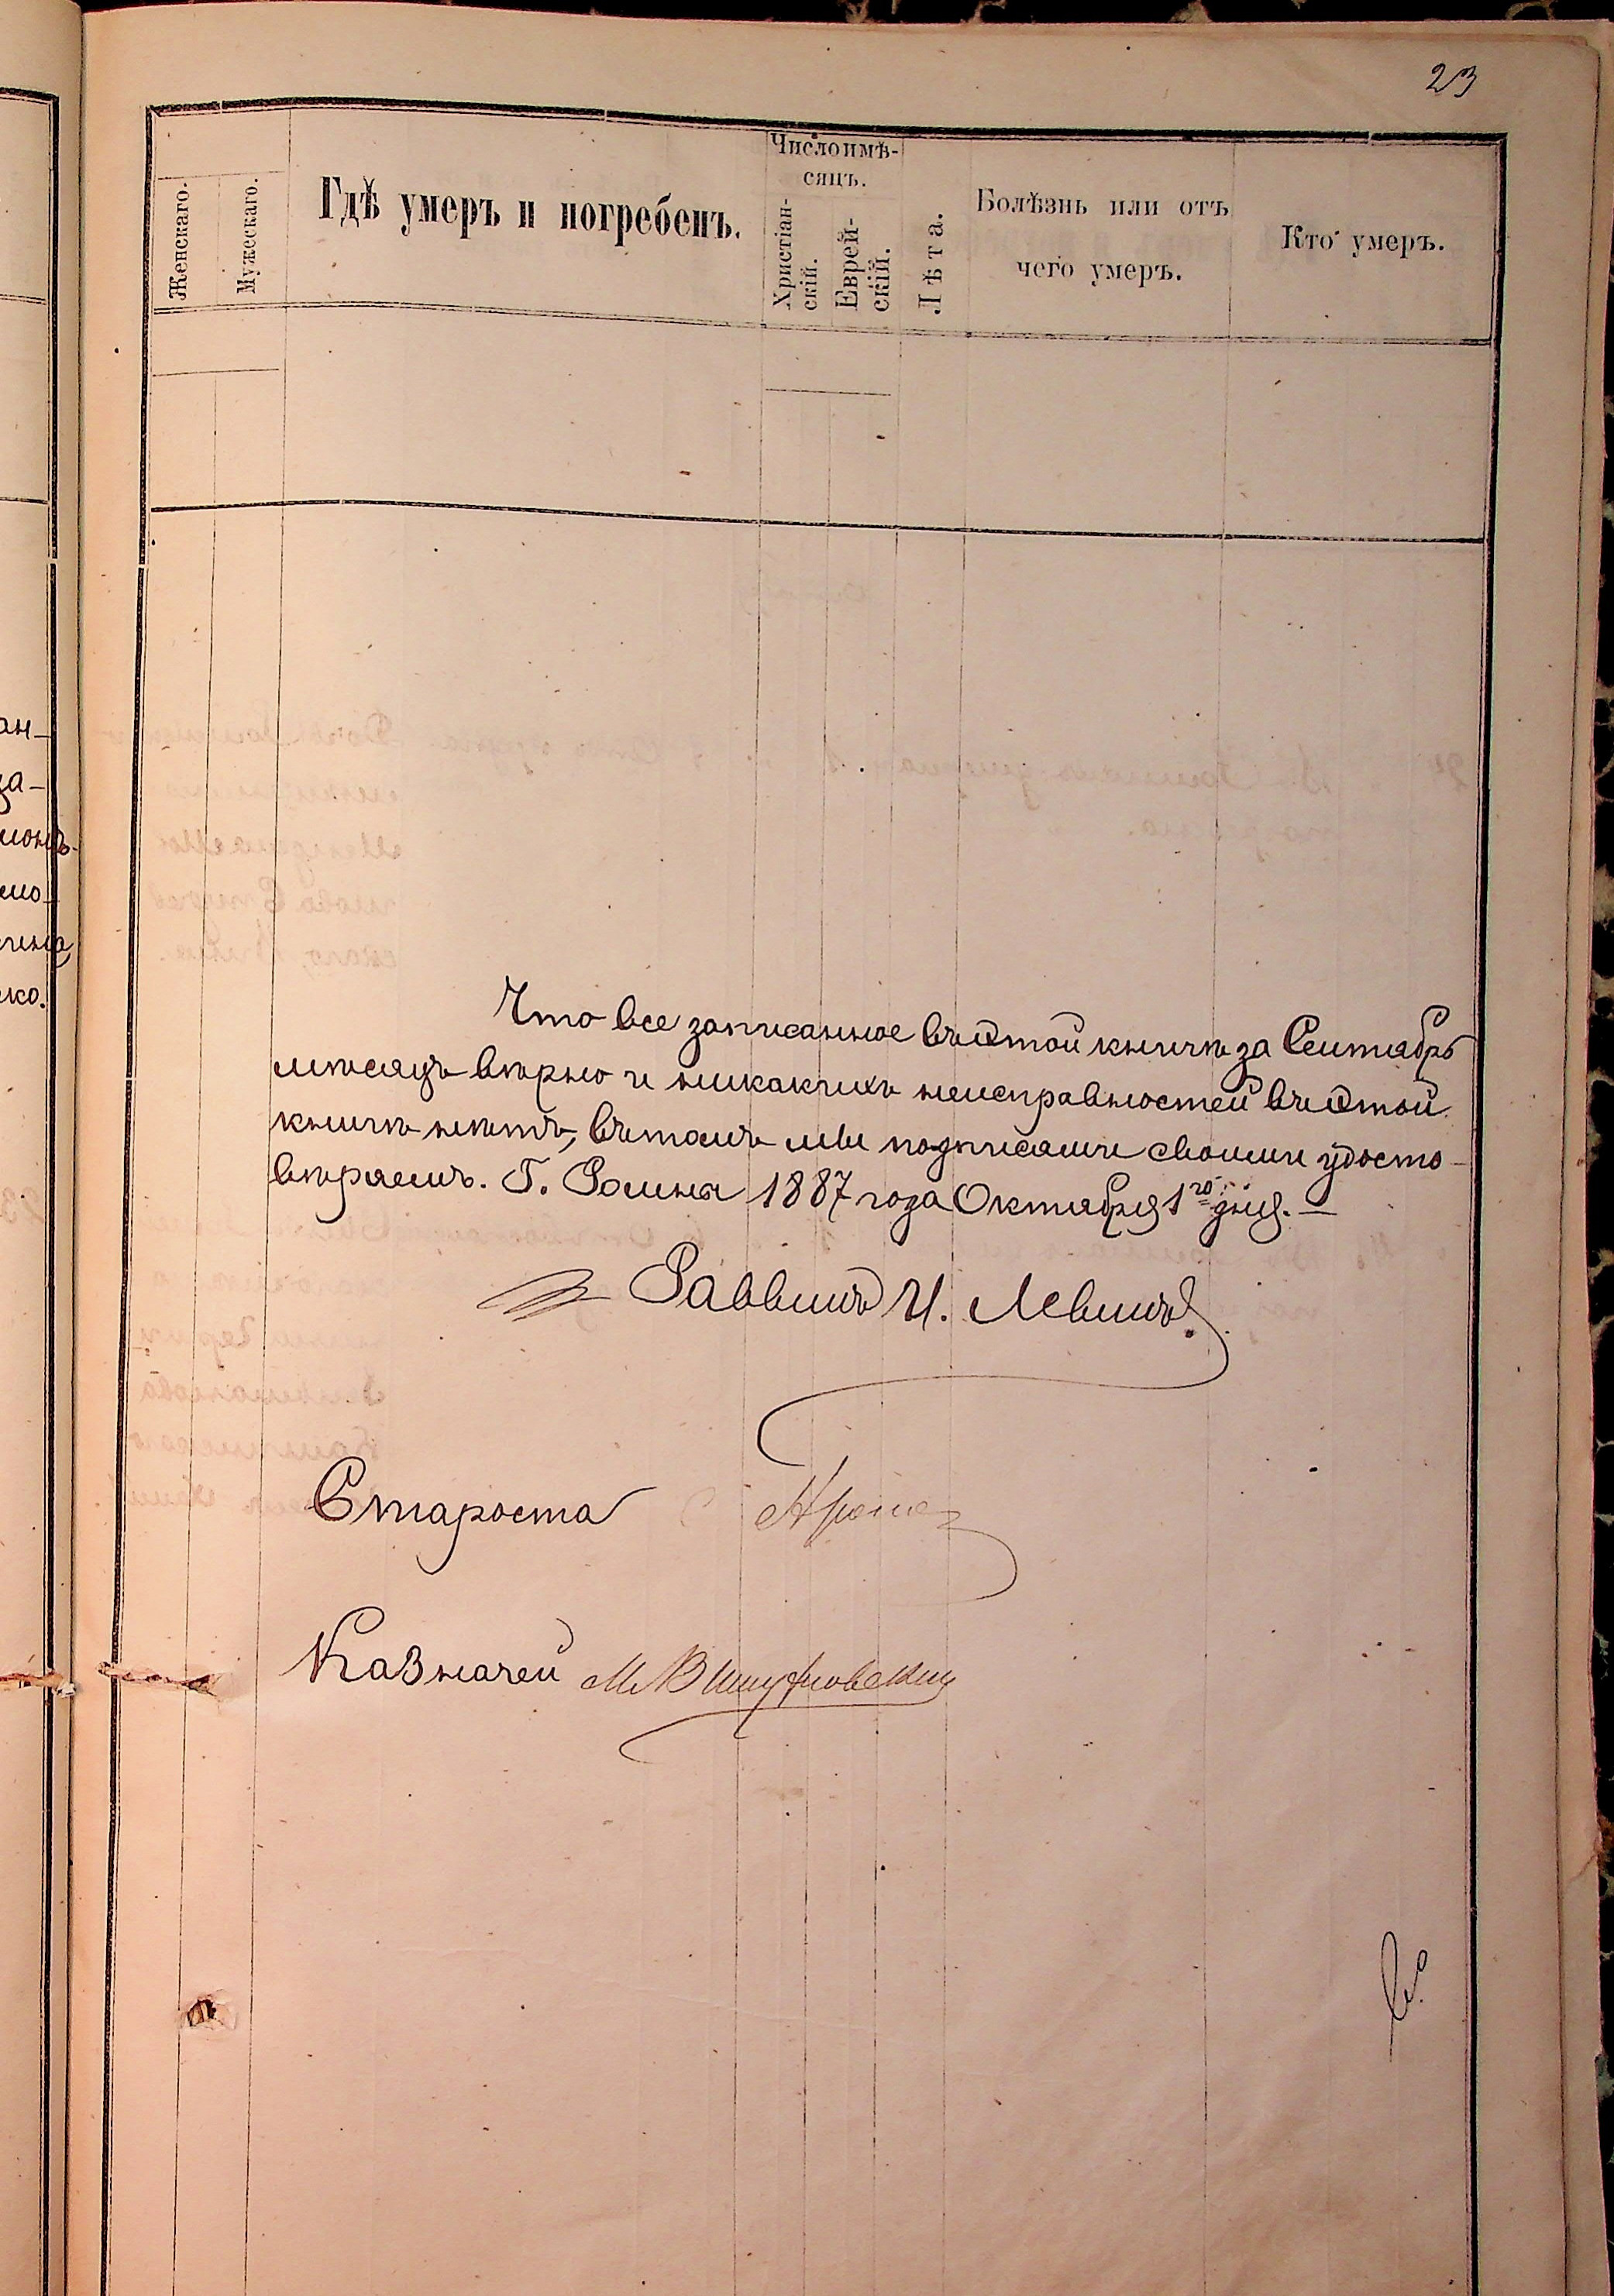 23
Женскаго.
Мужескаго.
Гдѣ умеръ и погребенъ.
Числоимѣ-
сяцъ.
Христіан-
скій.
Еврей-
скій.
Лѣта.
Болѣзнь или отъ
чего умеръ.
Кто умеръ.
Что все записанное въ этой книгѣ за Сентябрь
мѣсяцъ вѣрно и никакихъ неисправностей въ этой
книгѣ нѣтъ, въ томъ мы подписами своими удосто-
вѣряемъ. Г. Ромны 1887 года Октября 1го дня. —
Раввинъ И. Левинъ
Староста
Казначей М